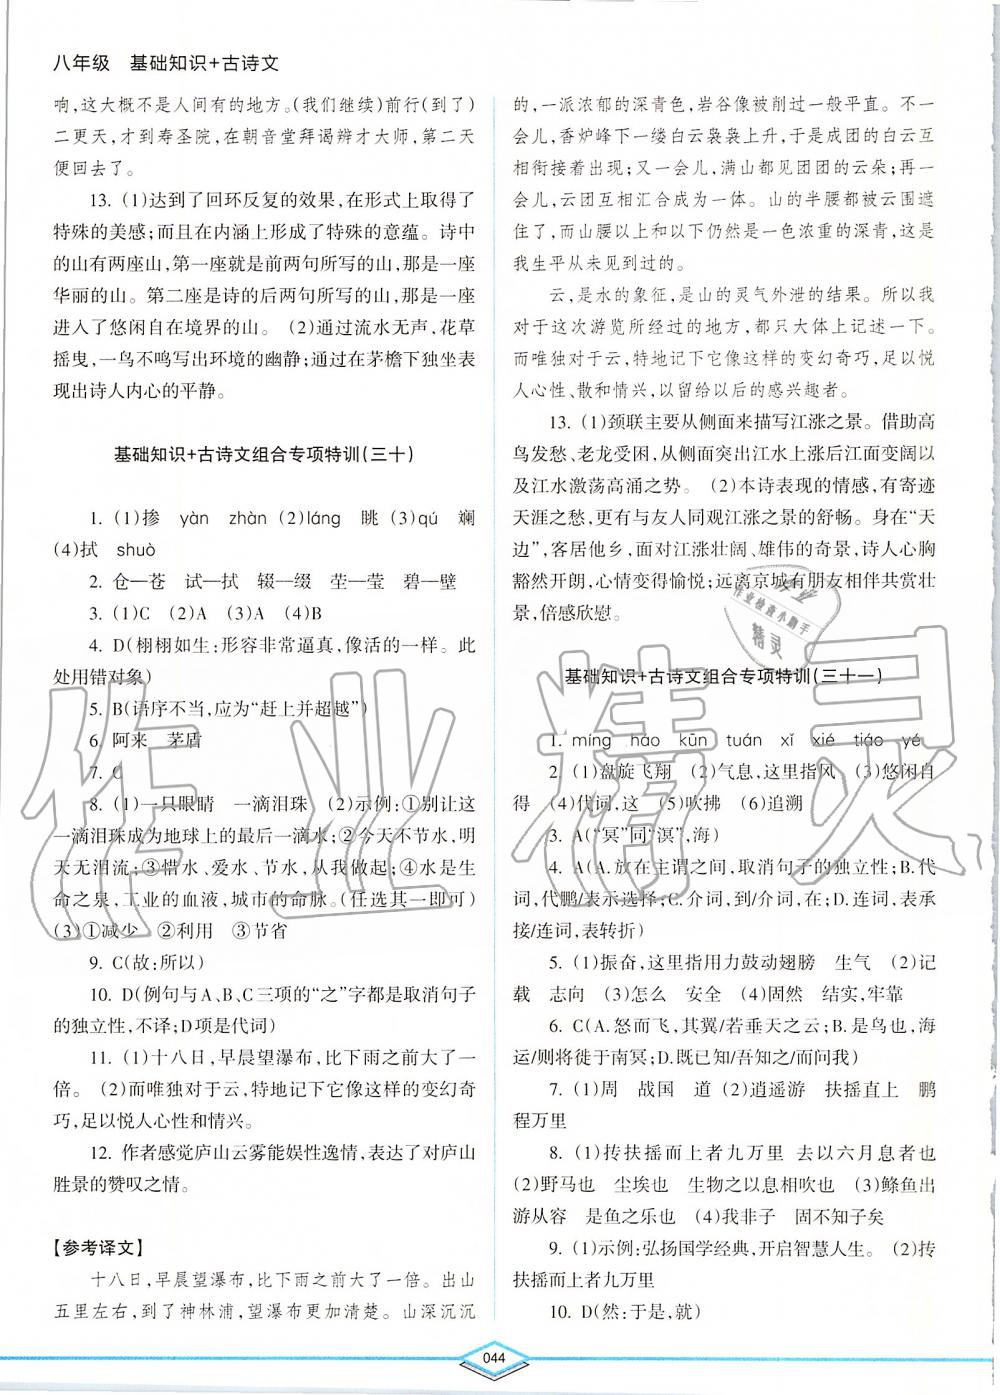 八年级 基础知识+古诗文
响,这大概不是人间有的地方。(我们继续)前行(到了)
二更天,才到寿圣院,在朝音堂拜谒辨才大师,第二天
便回去了。
13. (1)达到了回环反复的效果,在形式上取得了
特殊的美感;而且在内涵上形成了特殊的意蕴。诗中
的山有两座山,第一座就是前两句所写的山,那是一座
华丽的山。第二座是诗的后两句所写的山,那是一座
进入了悠闲自在境界的山。 (2)通过流水无声,花草
摇曳,一鸟不鸣写出环境的幽静;通过在茅檐下独坐表
现出诗人内心的平静。
基础知识+古诗文组合专项特训(三十)
1. (1)掺 yàn zhàn (2)láng 眺 (3)qú 斓
(4)拭 shuò
2. 仓—苍 试—拭 辍—缀 茔—莹 碧—壁
3. (1)C (2)A (3)A (4)B
4. D(栩栩如生:形容非常逼真,像活的一样。此
处用错对象)
5. B(语序不当,应为“赶上并超越”)
6. 阿来 茅盾
7. C
8. (1)一只眼睛 一滴泪珠 (2)示例:①别让这
一滴泪珠成为地球上的最后一滴水;②今天不节水,明
天无泪流;③惜水、爱水、节水,从我做起;④水是生
命之泉、工业的血液,城市的命脉。(任选其一即可)
(3)①减少 ②利用 ③节省
9. C(故:所以)
10. D(例句与A、B、C三项的“之”字都是取消句子
的独立性,不译;D项是代词)
11. (1)十八日,早晨望瀑布,比下雨之前大了一
倍。 (2)而唯独对于云,特地记下它像这样的变幻奇
巧,足以悦人心性和情兴。
12. 作者感觉庐山云雾能娱性逸情,表达了对庐山
胜景的赞叹之情。
【参考译文】
十八日,早晨望瀑布,比下雨之前大了一倍。出山
五里左右,到了神林浦,望瀑布更加清楚。山深沉沉
的,一派浓郁的深青色,岩谷像被削过一般平直。不一
会儿,香炉峰下一缕白云袅袅上升,于是成团的白云互
相衔接着出现;又一会儿,满山都见团团的云朵;再一
会儿,云团互相汇合成为一体。山的半腰都被云围遮
住了,而山腰以上和以下仍然是一色浓重的深青,这是
我生平从未见到过的。
云,是水的象征,是山的灵气外泄的结果。所以我
对于这次游览所经过的地方,都只大体上记述一下。
而唯独对于云,特地记下它像这样的变幻奇巧,足以悦
人心性、散和情兴,以留给以后的感兴趣者。
13. (1)颈联主要从侧面来描写江涨之景。借助高
鸟发愁、老龙受困,从侧面突出江水上涨后江面变阔以
及江水激荡高涌之势。 (2)本诗表现的情感,有寄迹
天涯之愁,更有与友人同观江涨之景的舒畅。身在“天
边”,客居他乡,面对江涨壮阔、雄伟的奇景,诗人心胸
豁然开朗,心情变得愉悦;远离京城有朋友相伴共赏壮
景,倍感欣慰。
基础知识+古诗文组合专项特训(三十一)
1. míng háo kūn tuán xǐ xié tiáo yé
2. (1)盘旋飞翔 (2)气息,这里指风 (3)悠闲自
得 (4)代词,这 (5)吹拂 (6)追溯
3. A(“冥”同“溟”,海)
4. A(A.放在主谓之间,取消句子的独立性;B.代
词,代鹏/表示选择;C.介词,到/介词,在;D.连词,表承
接/连词,表转折)
5. (1)振奋,这里指用力鼓动翅膀 生气 (2)记
载 志向 (3)怎么 安全 (4)固然 结实,牢靠
6. C(A.怒而飞,其翼/若垂天之云;B.是鸟也,海
运/则将徙于南冥;D.既已知/吾知之/而问我)
7. (1)周 战国 道 (2)逍遥游 扶摇直上 鹏
程万里
8. (1)抟扶摇而上者九万里 去以六月息者也
(2)野马也 尘埃也 生物之以息相吹也 (3)鲦鱼出
游从容 是鱼之乐也 (4)我非子 固不知子矣
9. (1)示例:弘扬国学经典,开启智慧人生。 (2)抟
扶摇而上者九万里
10. D(然:于是,就)
044
作业精灵
作业检查小助手
精灵